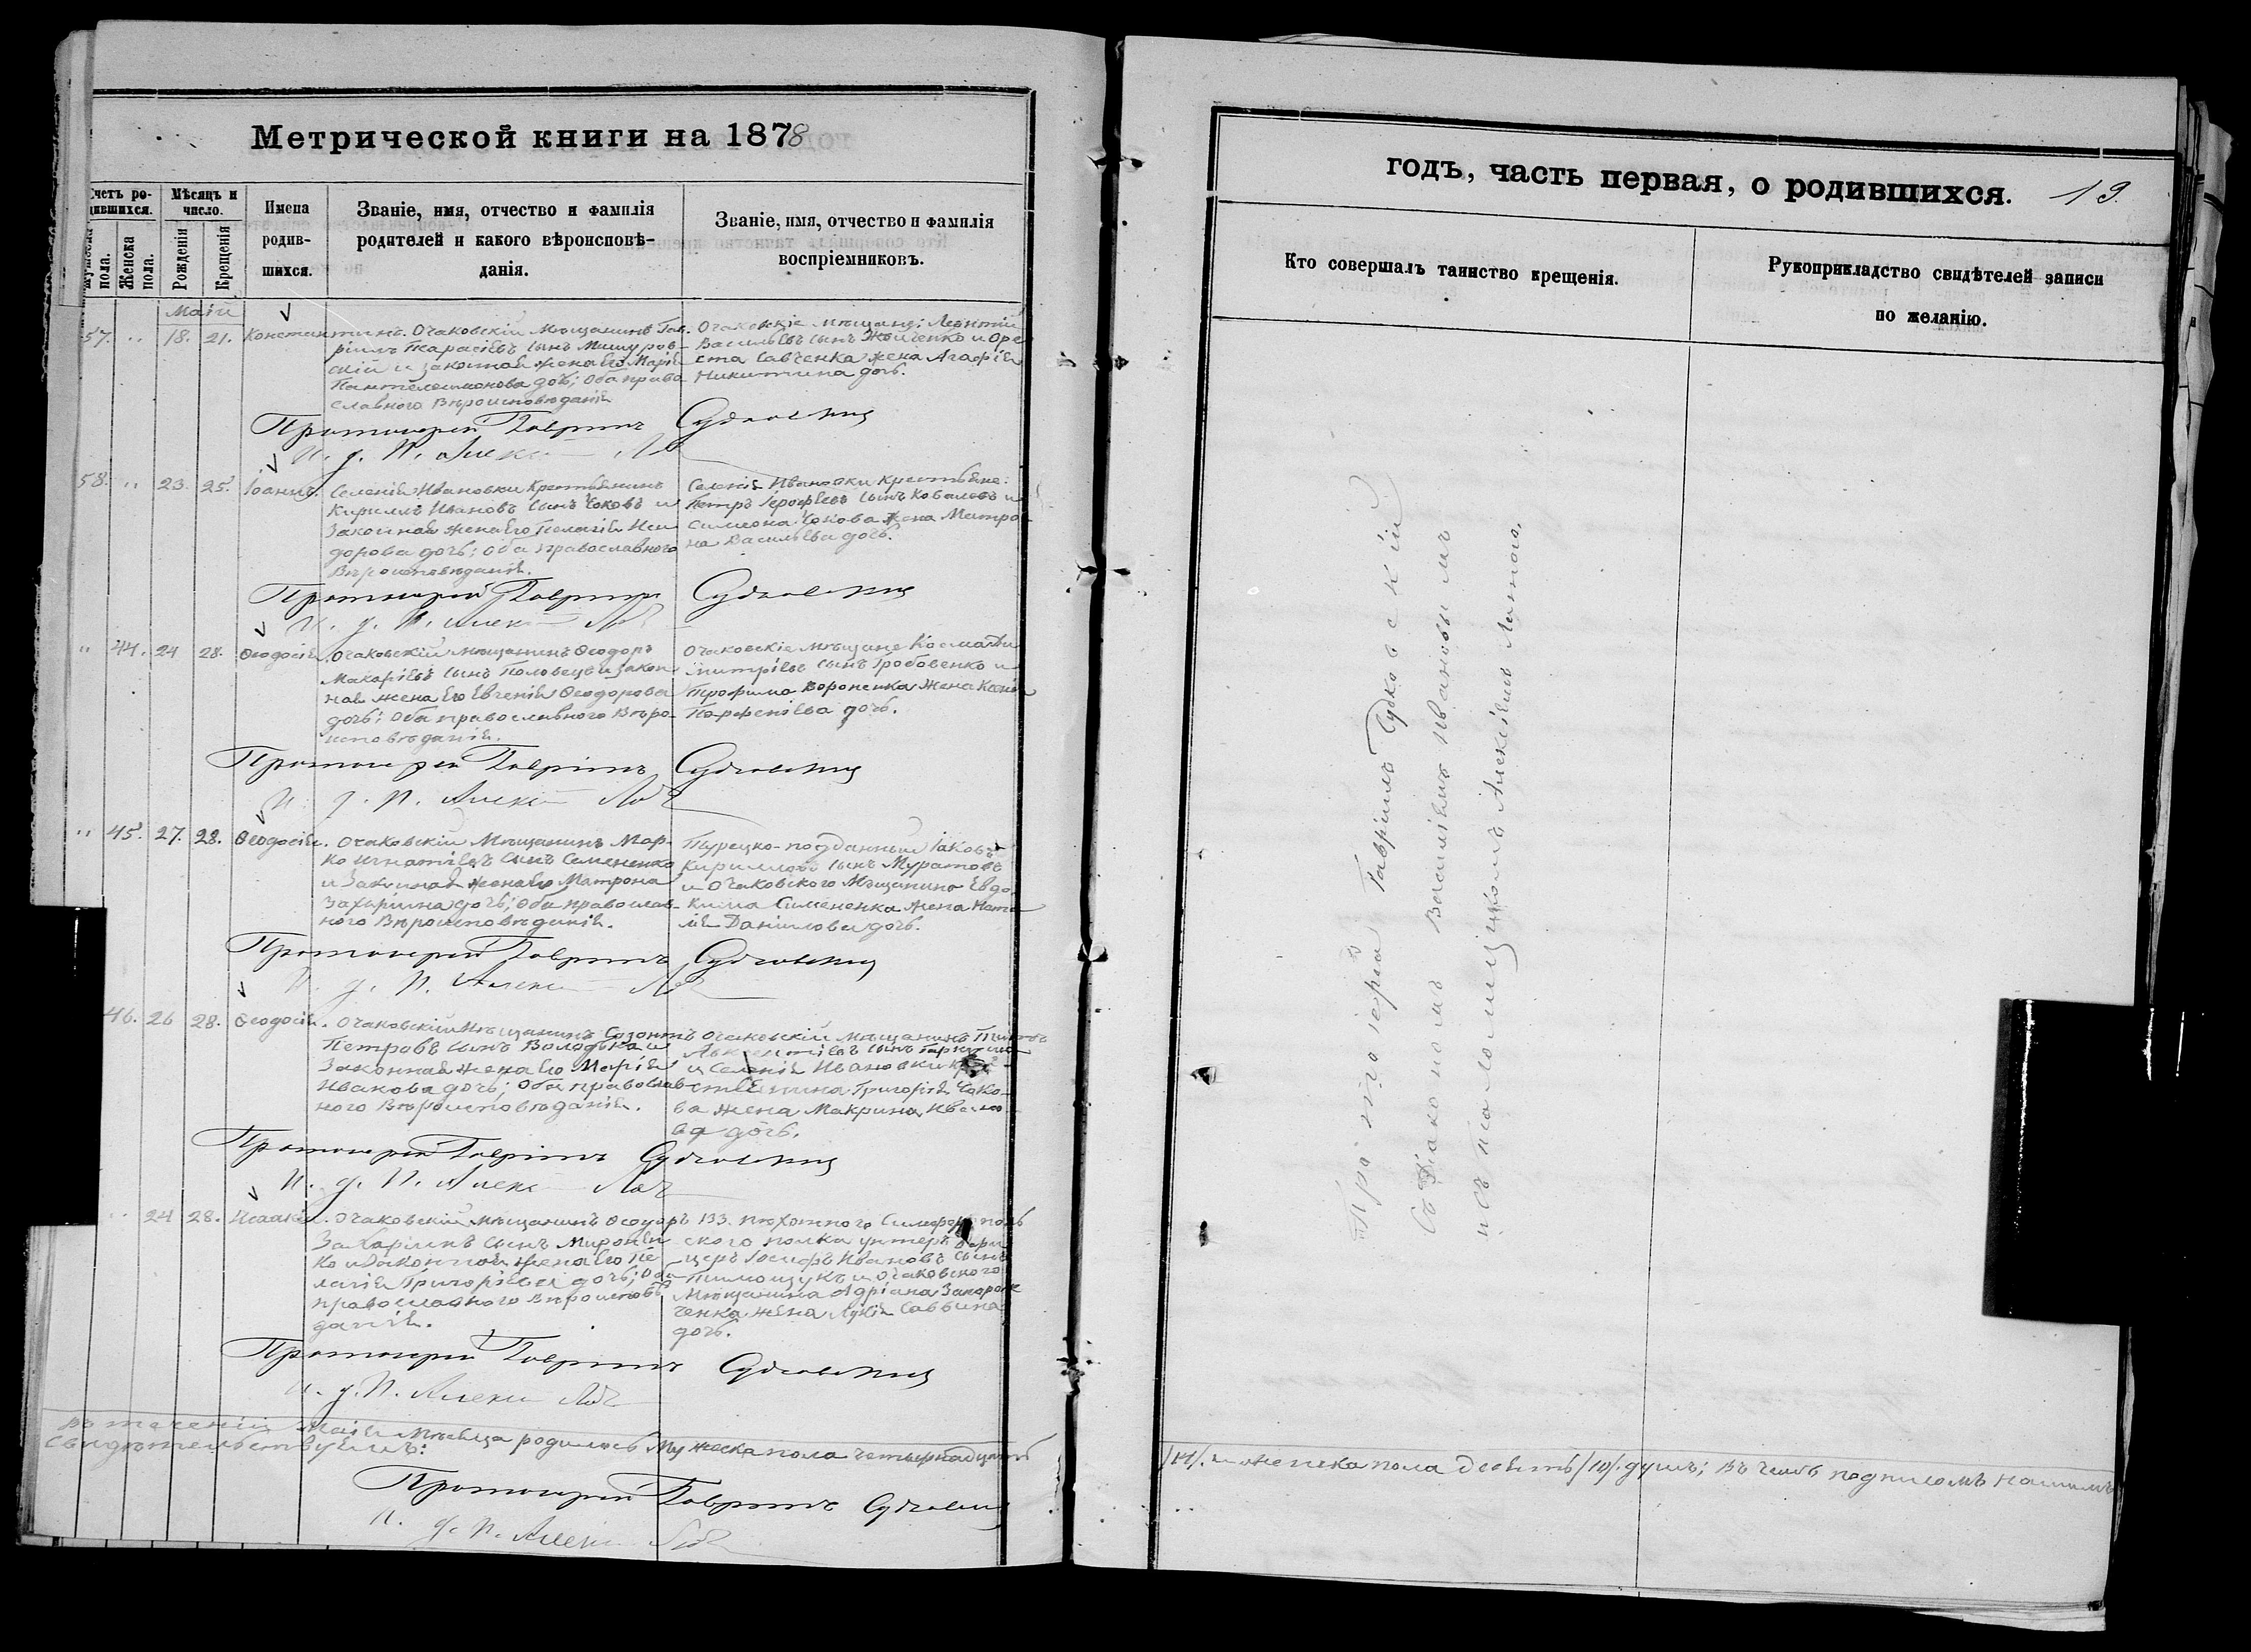 Метрической книги на 1878
Счетъ ро-
дившихся.
Мужеска
пола.
Женска
пола.
Мѣсяцъ и
число.
Рожденія
Крещенія
Имена
родив-
шихся.
Званіе, имя, отчество и фамилія
родителей и какого вѣроисповѣ-
данія.
Званіе, имя, отчество и фамилія
воспріемниковъ.
Маій
57. " 18. 21. Константинъ.
Очаковскій мѣщанинъ Гав-
ріилъ Тарасіевъ сынъ Мишуров-
скій и законная жена его Марія
Пантелеимонова дочь; оба право-
славнаго вѣроисповѣданія
Очаковскіе мѣщане: Леонтій
Васильевъ сынъ и Оре-
ста Савченка жена Агафія
Никитина дочь.
Протоіерей Гавріилъ Судковскій
и. д. п. Алексій
58. " 23. 25. Іоаннъ.
Селенія Ивановки крестьянинъ
Кириллъ Ивановъ сынъ Чоковъ и
законная жена его Пелагія Иси-
дорова дочь; оба православного
вѣроисповѣданія.
Селенія Ивановки крестьяне:
Петръ Іерофѣевъ сынъ Ковалевъ и
Симеона Чокова жена Матро-
на Васильева дочь.
Протоіерей Гавріилъ Судковскій
и. д. п. Алексій
" 44. 24 28. Ѳеодосія.
Очаковскій мѣщанинъ Ѳеодоръ
Макаріевъ сынъ Половецъ и закон-
ная жена его Евгенія Ѳеодорова
дочь; оба православного вѣро-
исповѣданія.
Очаковскіе мѣщане Косма Ди-
митріевъ сынъ Гробовенко и
Трофима Вороненка жена Ксенія
Парфеніева дочь.
Протоіерей Гавріилъ Судковскій
и. д. п. Алексій
" 45. 27. 28. Ѳеодосія.
Очаковскій мѣщанинъ Мар-
ко Игнатіевъ сынъ Семененко
и законная жена его Матрона
Захаріина дочь; оба православ-
ного вѣроисповѣданія.
Турецко-подданный Іаковъ
Кирилловъ сынъ Муратовъ
и Очаковского мѣщанина Евдо-
кима Симененка жена Ната-
лія Даніилова дочь.
Протоіерей Гавріилъ Судковскій
и. д. п. Алексій
46. 26 28. Ѳеодосія.
Очаковскій мѣщанинъ Созонтъ
Петровъ сынъ Володька и
законная жена его Марія
Иванова дочь; оба православ-
ного вѣроисповѣданія.
Очаковскій мѣщанинъ
сынъ
и селенія Ивановки кре-
стьянина Григорія Чоко-
ва жена Макрина Ивано-
ва дочь.
Протоіерей Гавріилъ Судковскій
и. д. п. Алексій
24 28. Исаакій.
Очаковскій мѣщанинъ Ѳеодоръ
Захаріинъ сынъ Миронен-
ко и законная жена его Пе-
лагія Григоріева дочь; оба
православного вѣроисповѣ-
данія.
133. пѣхотного Симферополь
ского полка унтеръ офи-
церъ Іосифъ Ивановъ сынъ
Тимощукъ и Очаковского
мѣщанина Адріана
ченка жена Лукія Саввина
дочь.
Протоіерей Гавріилъ Судковскій
и. д. п. Алексій
Въ теченіи Маія мѣсяца родилось мужеска пола четырнадцать
свидѣтельствуемъ:
Протоіерей Гавріилъ Судковскій
и. д. п. Алексій
годъ, часть первая, о родившихся. 19.
Кто совершалъ таинство крещенія.
Рукоприкладство свидѣтелей записи
по желанію.
Протоіерей Гавріилъ Судковскій
съ Діакономъ Ивановымъ
и съ псаломщикомъ Алексіемъ
/14/. и женска пола десять /10/. душъ; въ чемъ подписомъ нашимъ